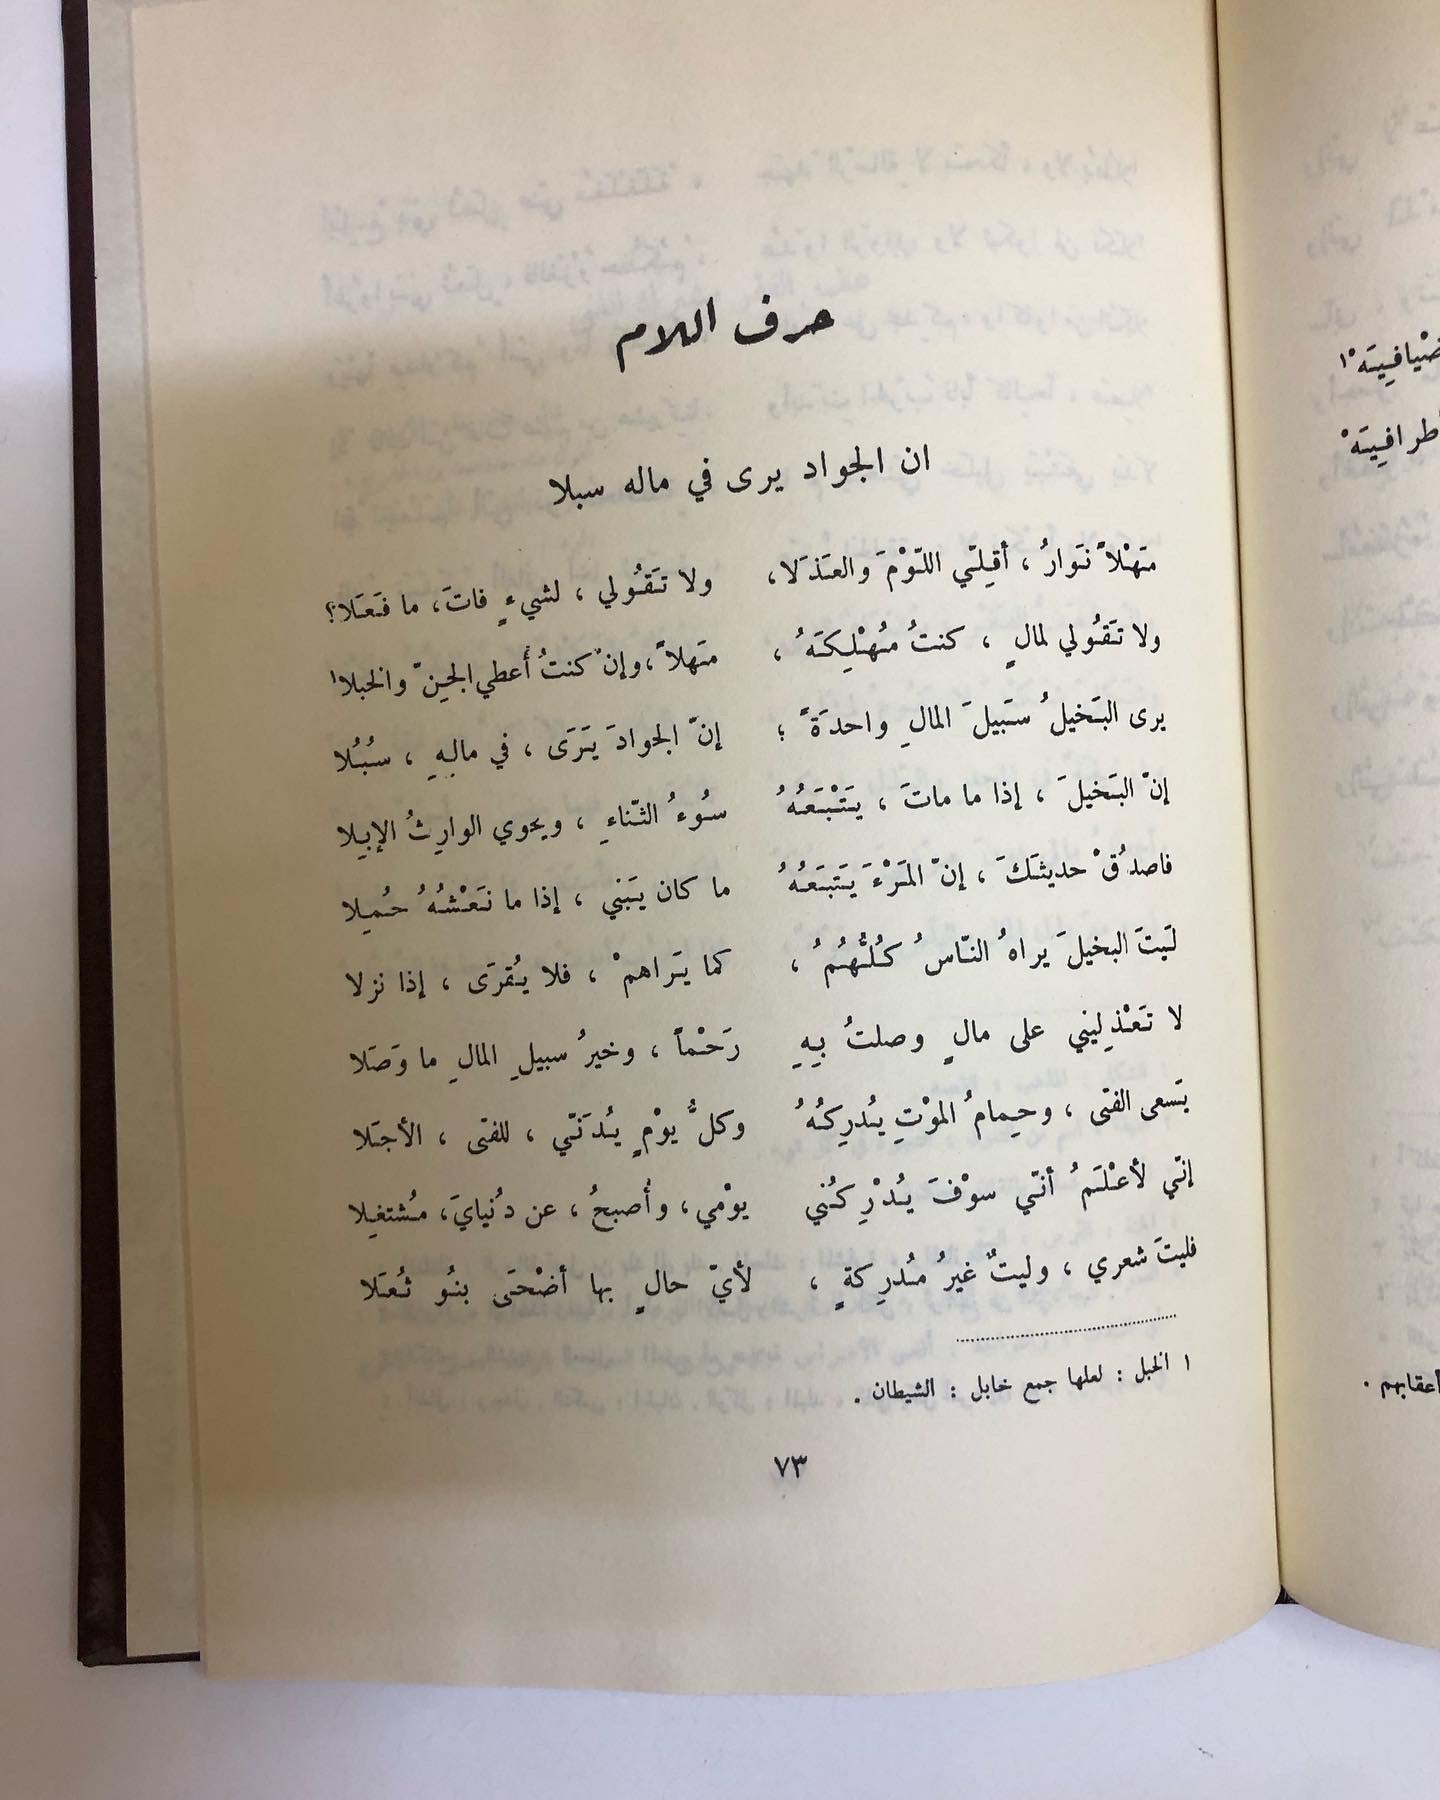 حرف اللام
ان الجواد يرى في ماله سبلا
مَهْلاً نَوارُ ، أقِلّي اللّوْمَ والعَذَلا، ولا تَقُولي ، لشيءٍ فاتَ، ما فَعَلا؟
ولا تَقُولي لمالٍ ، كنتُ مُهْلِكَهُ ، مَهلاً، وإنْ كنتُ أُعطي الجِنّ والخبلا١
يرى البَخيلُ سَبيلَ المالِ واحدَةً ؛ إنّ الجوادَ يَرَى ، في مالِهِ ، سُبُلا
إنّ البَخيلَ ، إذا ما ماتَ ، يَتْبَعُهُ سُوءُ الثّناءِ ، ويحوي الوارِثُ الإبِلا
فاصدُقْ حديثَكَ ، إنّ المَرْءَ يَتبَعُهُ ما كان يَبني ، إذا ما نَعْشُهُ حُمِلا
لَيتَ البخيلَ يراهُ النّاسُ كُلُّهُمُ ، كما يَراهمْ ، فلا يُقرَى ، إذا نزلا
لا تَعْذِليني على مالٍ وصلتُ بِهِ رَحْماً ، وخيرُ سبيلِ المالِ ما وَصَلا
يَسعى الفتى ، وحِمامُ الموْتِ يُدرِكُهُ وكلُّ يوْمٍ يُدَنّي ، للفتى ، الأجَلا
إنّي لأعْلَمُ أنّي سوْفَ يُدْرِكُني يوْمي، وأُصبحُ ، عن دُنيايَ، مُشتغِلا
فليتَ شعري ، وليتٌ غيرُ مُدرِكةٍ ، لأيّ حالٍ بها أضْحَى بنُو ثُعَلا
١ الخبل : لعلها جمع خابل : الشيطان .
٧٣
أعقابهم .